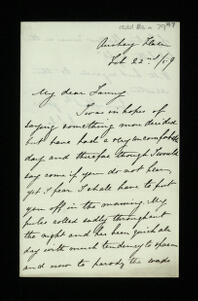 Feb 22nd /59
My dear Fanny
I was in hopes of
saying something more decided
but have had a very uncomfortable
day and therefore though I would
say come if you do not hear,
yet I fear I shall have to put
you off in the morning. My
pulse rolled sadly throughout
the night and has been quick all
day with much tendency to spasm
and now to parody the